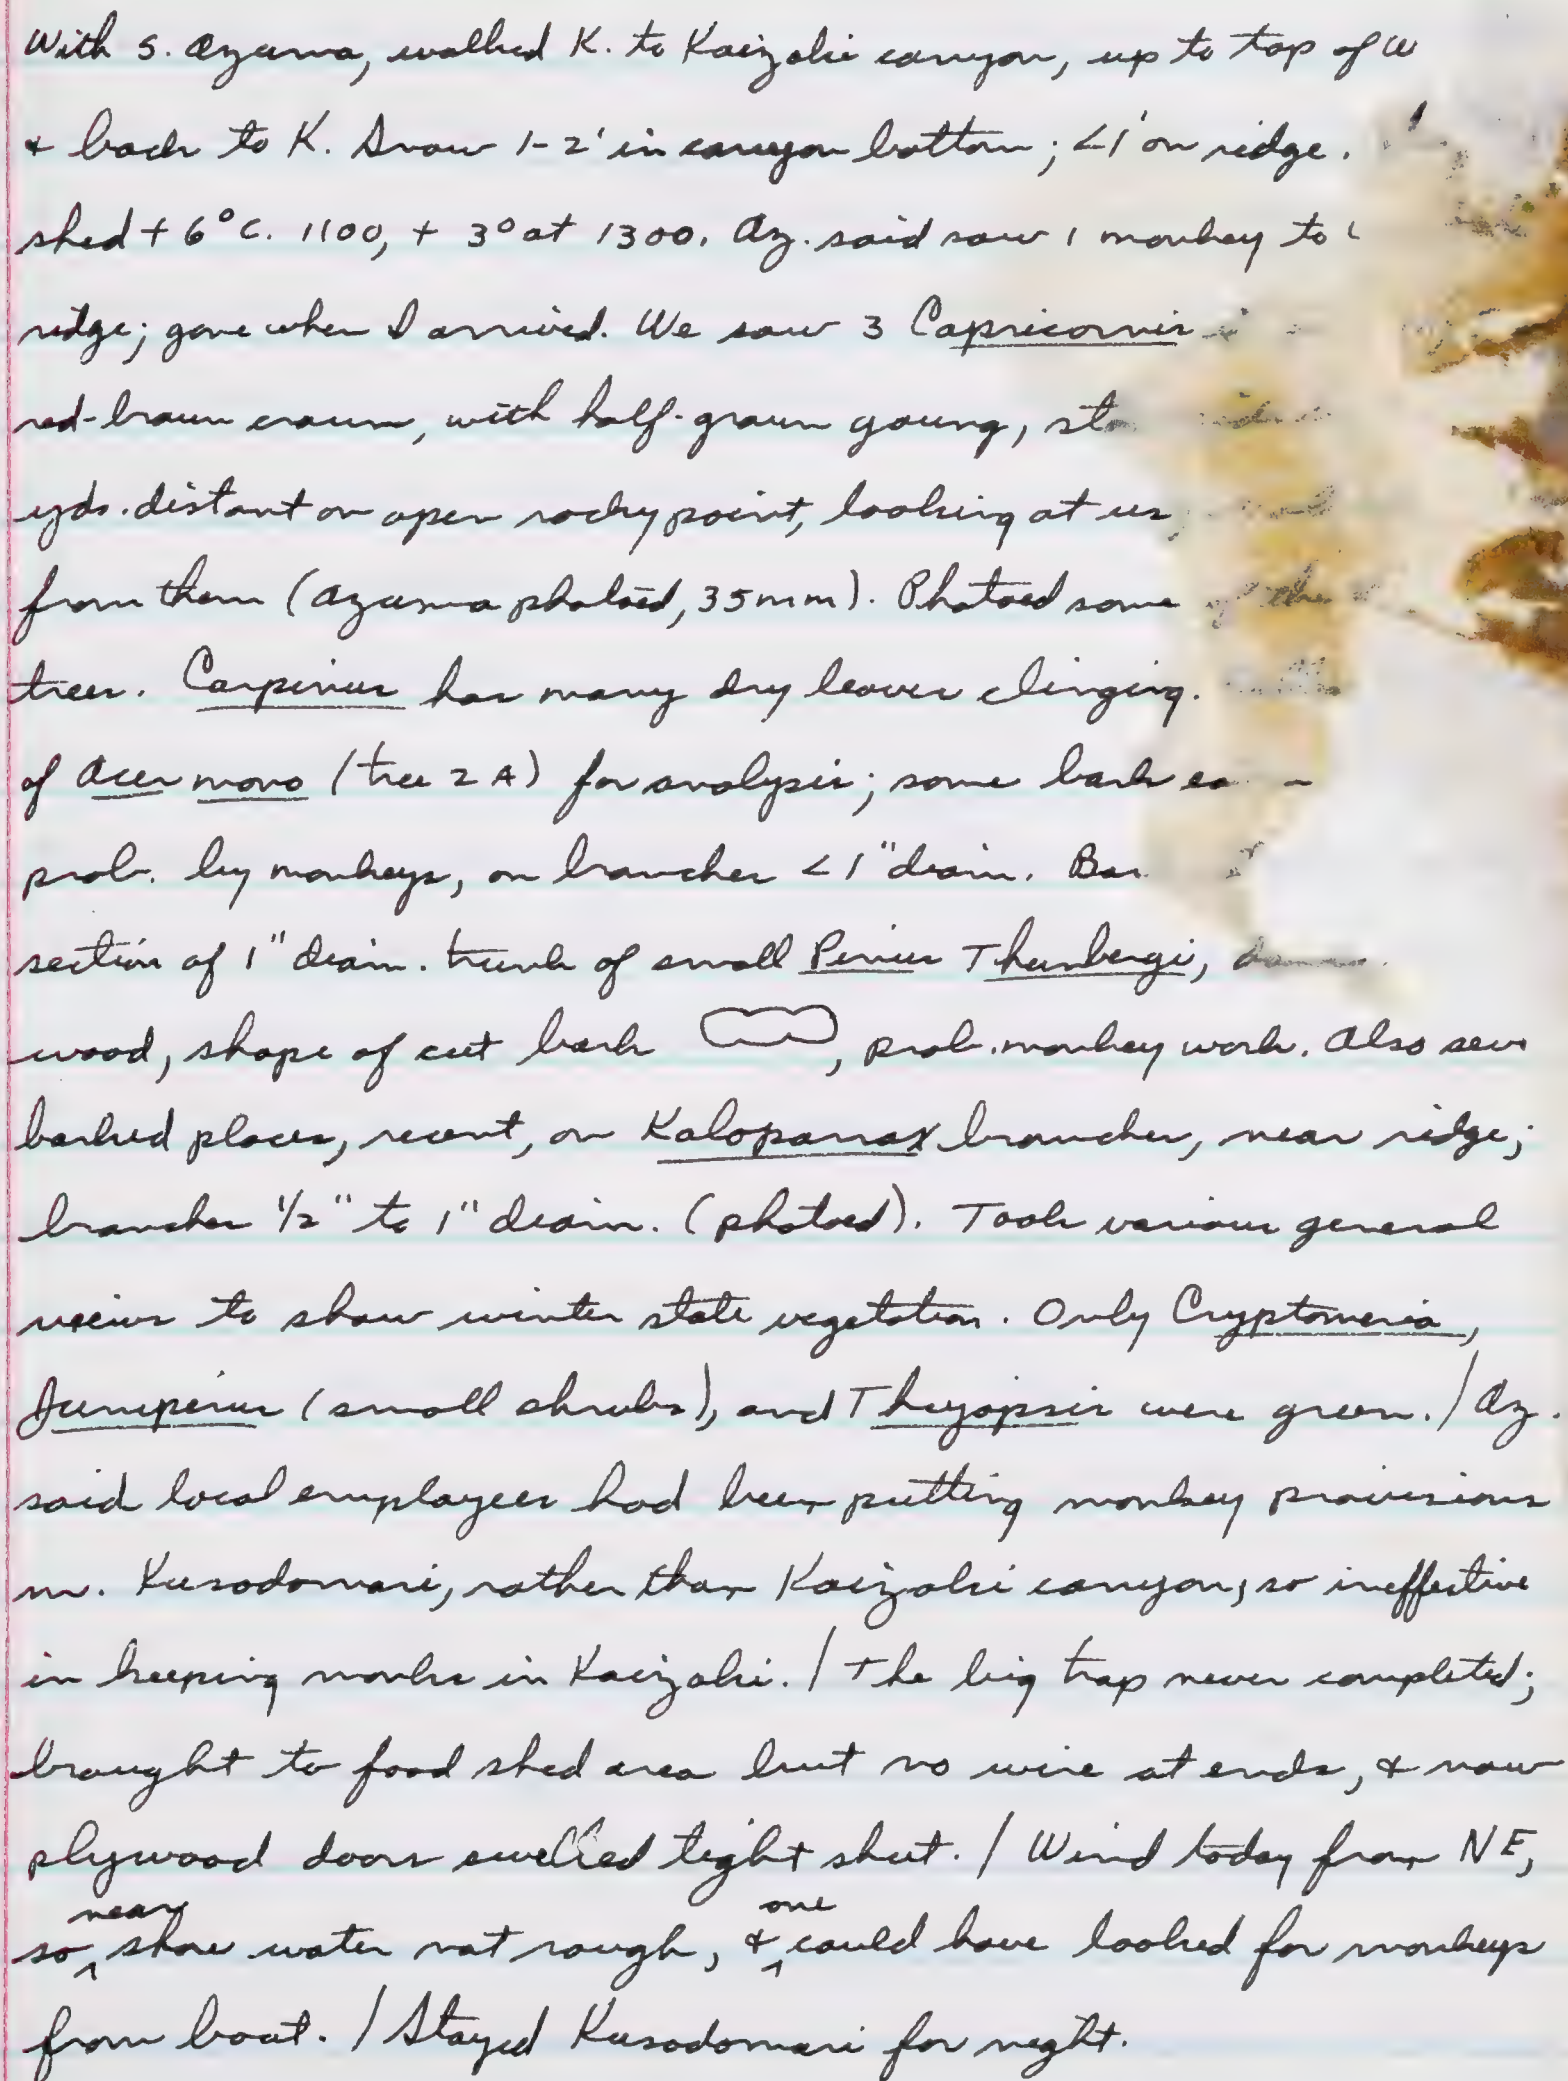 With S. Azuma, walked K. to Kaizaki canyon, up to top of
& back to K. Snow 1-2' in canyon bottom; <1' on ridge.
shed + 6°C. 1100, + 3° at 1300. Az. said saw 1 monkey to
ridge; gone when I arrived. We saw 3 Capricornis
red-brown crown, with half-grown young,
yds. distant on open rocky point, looking at us
from them (Azuma photoed, 35mm). Photoed some of the
trees. Carpinus has many dry leaves clinging.
of Acer mono (tree 2A) for analysis; some bark
prob. by monkeys, on branches <1" diam.
section of 1" diam. trunk of small Pinus Thunbergi,
wood, shape of cut bark , prob. monkey work. Also
barked places, recent, on Kalopanax branches, near ridge;
branches 1/2" to 1" diam. (photoed). Took various general
views to show winter state vegetation. Only Cryptomeria,
Juniperus (small shrubs), and Thujopsis were green. / Az.
said local employees had been putting monkey provisions
nr. Kusodomari, rather than Kaizaki canyon, so ineffective
in keeping monks in Kaizaki. / The big trap never completed;
brought to food shed area but no wire at ends, & now
plywood doors swelled tight shut. / Wind today from NE,
so near shore water not rough, & one could have looked for monkeys
from boat. / Stayed Kusodomari for night.